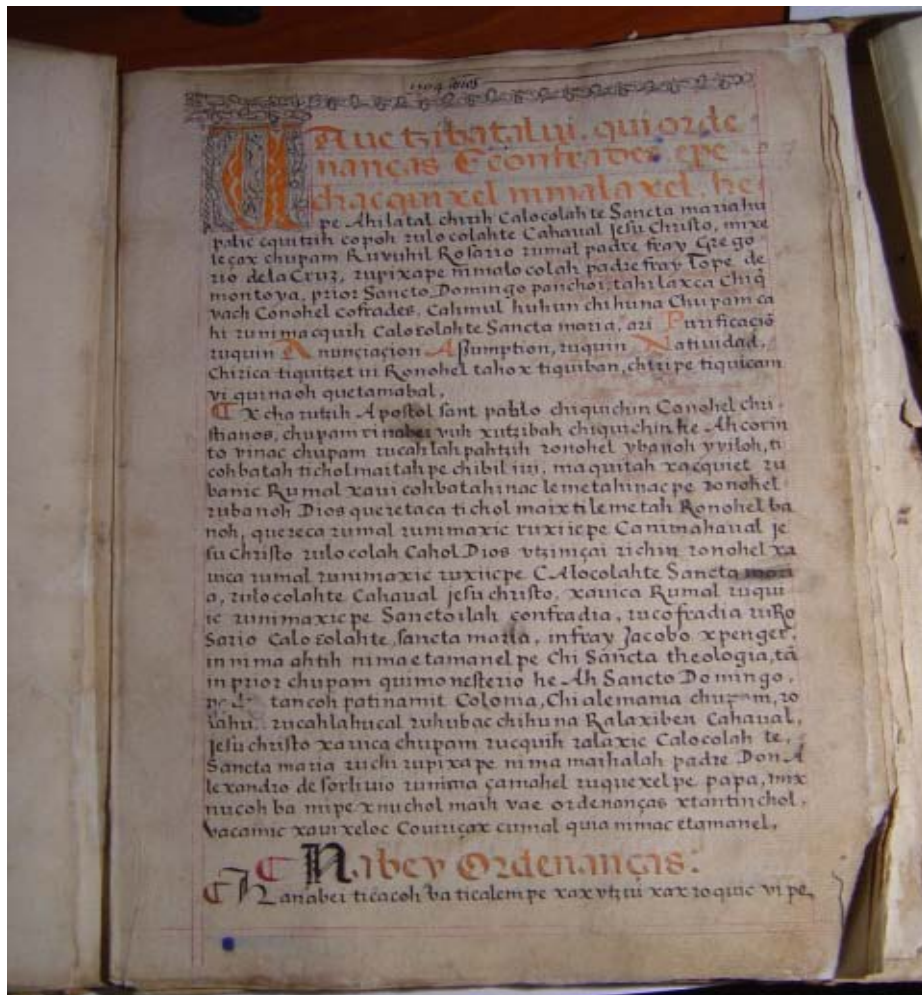 Vae tzibatal ui. qui orde
nanças Cconfrades epe
chacquixel mmalaxel. he
pe Ahilatal chirih Calocolahte Sancta maria hu
patic equitzih copoh zulocolahte Cahaual Jesu Christo, mixe
leçax chupam Ruvuhil Rosario rumal padre fray Grego
rio dela Cruz, rupixape mmalocolah padre fray Lope de
montoya, prior Sancto Domingo panchoi, tahilaxca Chiq̃
vach Conohel cofrades, Cahmul huhun chihuna Chupam ca
hi runimacquih Calocolahte Sancta maria, ari Purificaciõ
ruquin Anunçiaçion Assumption, ruquin Natividad.
Chirica tiquitzet ui Ronohel tahox tiquiban, chtzipe tiquicam
vi quinaoh quetamabal.
Xcha rutzih Apostol sant pablo chiquichin Conohel chri
stianos, chupam ri nabei vuh xutzibah chiquichin he Ah corin
to vinac chupam rucahlahpahtzih ronohel ybanoh yviloh, ti
cohbatah tichol maitahpe chibil iui, maquitah xacquiet ru
banic Rumal xaui cohbatahinac lemetahinacpe ronohel
rubanoh Dios queretaca tichol maixtilemetah Ronohel ba
noh, quereca rumal runimaxic ruxiicpe Canimahaual Je
su christo rulocolah Cahol Dios utzimçai richin ronohel xa
uica rumal runimaxic ruxiicpe CAlocolahte Sancta mari
a, rulocolahte Cahaual Jesu christo, xauica Rumal ruqui
ic runimaxicpe Sancto ilah confradia, rucofradia ruRo
sario Calocolahte, sancta maria, in fray Jacobo xpenger,
in nima ahtih nima etamanel pe Chi Sancta theologia, tã
in prior chupam quimonesterio he Ah Sancto Domingo,
tancoh patinamit Colonia, Chi alemama chupam, ro
iahu. rucahlahucal ruhubac chihuna Ralaxiben Cahaual,
Jesu christo xauica chupam rucquih ralaxic Calocolah te,
Sancta maria ruchi rupixape nima maihalah padre Don A
lexandro de forliuio runima çamahel ruquexelpe papa, mix
nucoh ba mipe xnuchol maih vae ordenanças xtantinchol,
vacamic xaui xeloc Couiriçax cumal quia nimac etamanel.
Nabey Ordenanças.
anabei ticacoh ba ticalempe xax utz ui xax roquic vi pe